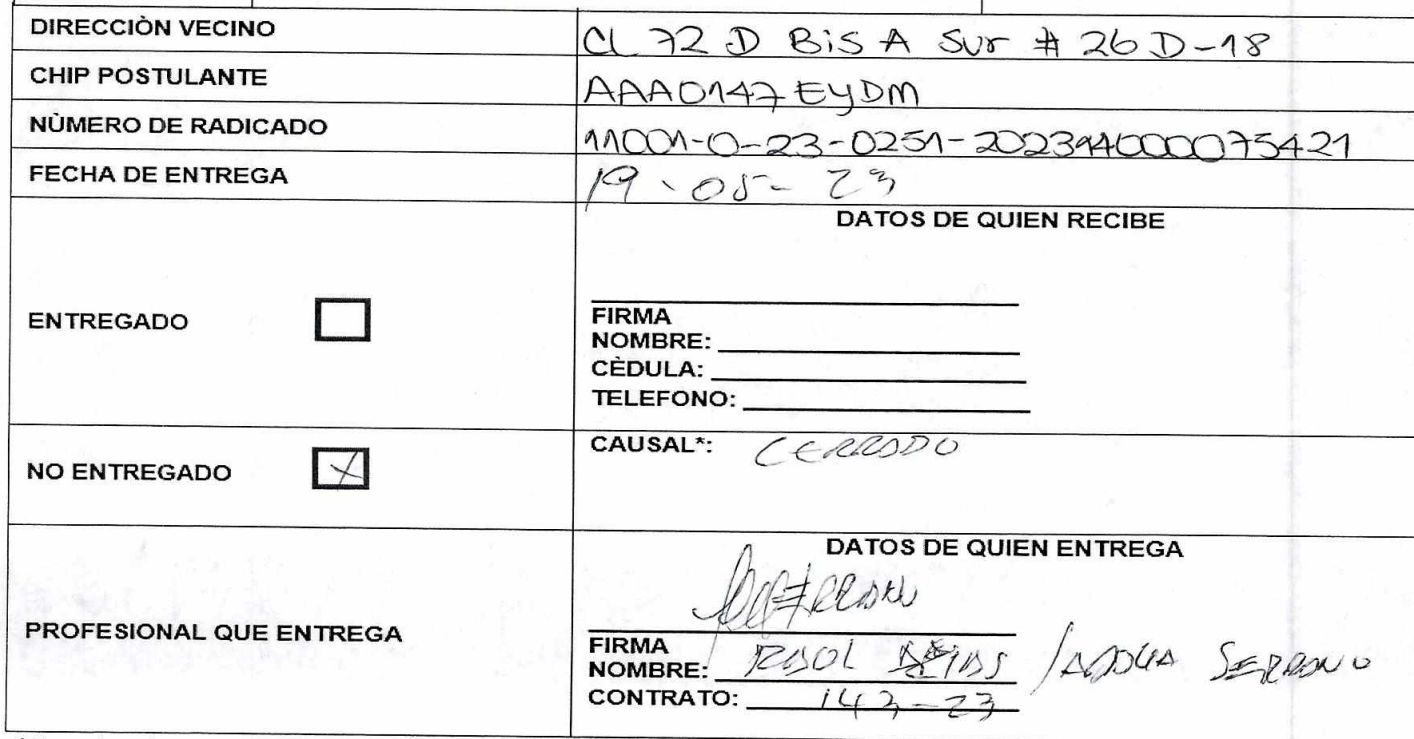 DIRECCIÒN VECINO CL 72 D BiS A Sur # 26 D-18
CHIP POSTULANTE AAA0147EYDM
NÙMERO DE RADICADO 11001-0-23-0251-20239140000075421
FECHA DE ENTREGA 19-05-23
DATOS DE QUIEN RECIBE
ENTREGADO
FIRMA
NOMBRE:
CÈDULA:
TELEFONO:
NO ENTREGADO X
CAUSAL*: CERRADO
DATOS DE QUIEN ENTREGA
PROFESIONAL QUE ENTREGA
FIRMA
NOMBRE: SERRANO
CONTRATO: 143-23